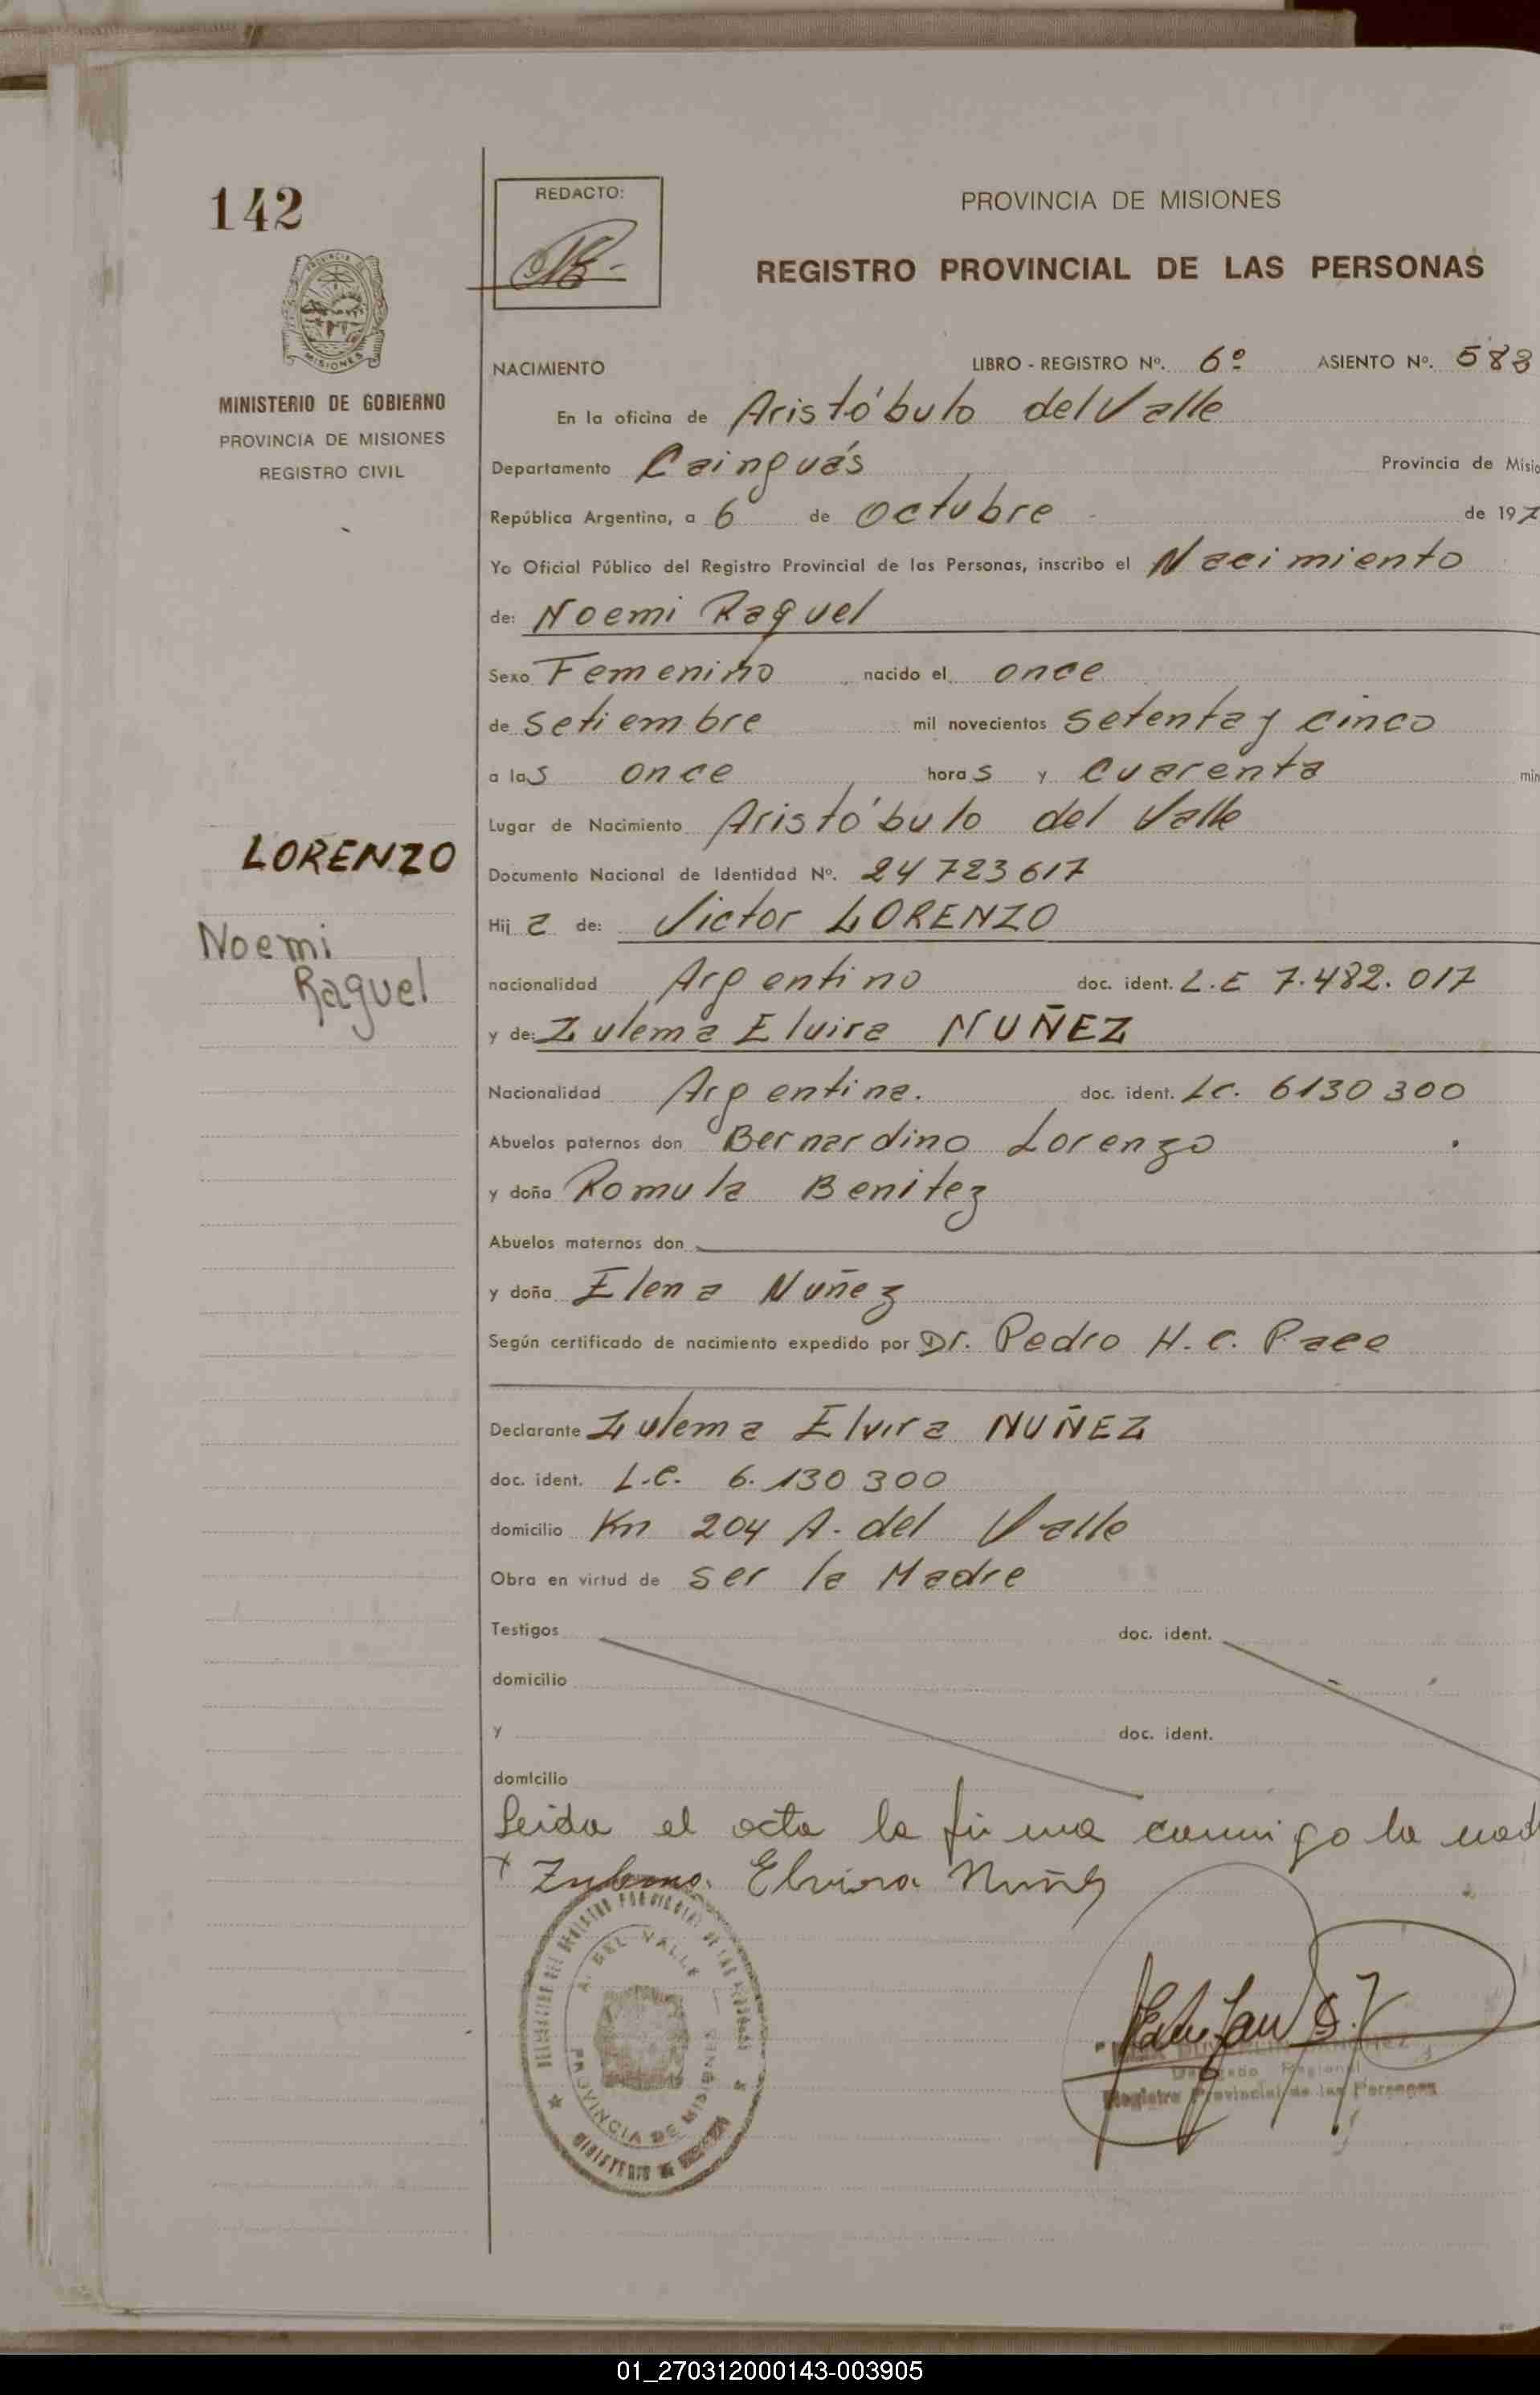 142
REDACTO:
PROVINCIA DE MISIONES
REGISTRO PROVINCIAL DE LAS PERSONAS
MISIONES
MINISTERIO DE GOBIERNO
PROVINCIA DE MISIONES
REGISTRO CIVIL
NACIMIENTO LIBRO - REGISTRO Nº. 6º ASIENTO Nº. 583
En la oficina de Aristóbulo del Valle
Departamento Cainguás Provincia de Misio
República Argentina, a 6 de octubre de 197
Yo Oficial Público del Registro Provincial de las Personas, inscribo el Nacimiento
de: Noemi Raquel
Sexo Femenino nacido el once
de setiembre mil novecientos setenta y cinco
a las once horas y cuarenta min
Lugar de Nacimiento Aristóbulo del Valle
LORENZO
Documento Nacional de Identidad Nº. 24 723 617
Hij a de: Victor LORENZO
Noemi
Raquel
nacionalidad Argentino doc. ident. L.E 7.482.017
y de: Zulema Elvira NUÑEZ
Nacionalidad Argentina. doc. ident. LC. 6130 300
Abuelos paternos don Bernardino Lorenzo
y doña Romula Benitez
Abuelos maternos don
y doña Elena Nuñez
Según certificado de nacimiento expedido por Dr. Pedro H. C. Pace
Declarante Zulema Elvira NUÑEZ
doc. ident. L.C. 6.130 300
domicilio Km 204 A. del Valle
Obra en virtud de ser la Madre
Testigos doc. ident.
domicilio
y doc. ident.
domicilio
Leida el acta la firma conmigo la mad
+ Zulema Elvira Nuñez
DELEGACION DEL REGISTRO PROVINCIAL DE LAS PERSONAS
A. DEL VALLE
PROVINCIA DE MISIONES
MINISTERIO DE
Delegado Regional
Registro Provincial de las Personas
01_270312000143-003905